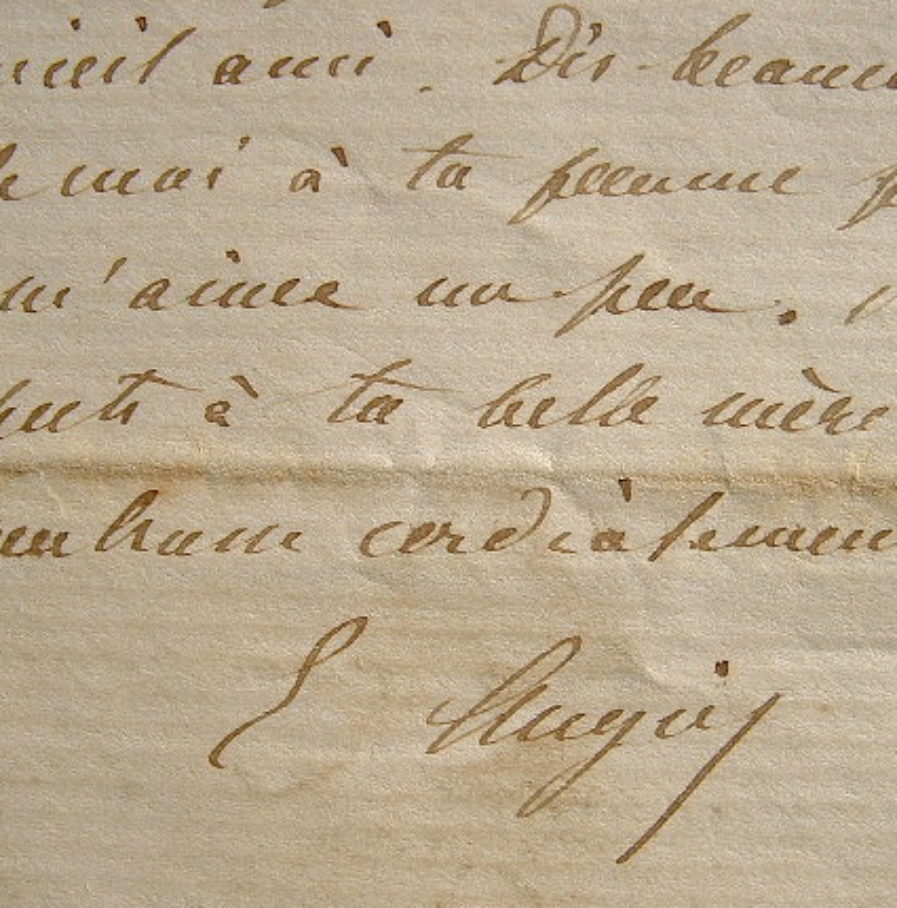 vieil ami. Dis-beauco
de moi à ta femme p
m'aimee un peu.
à ta belle mère
cordialemen
E Augier